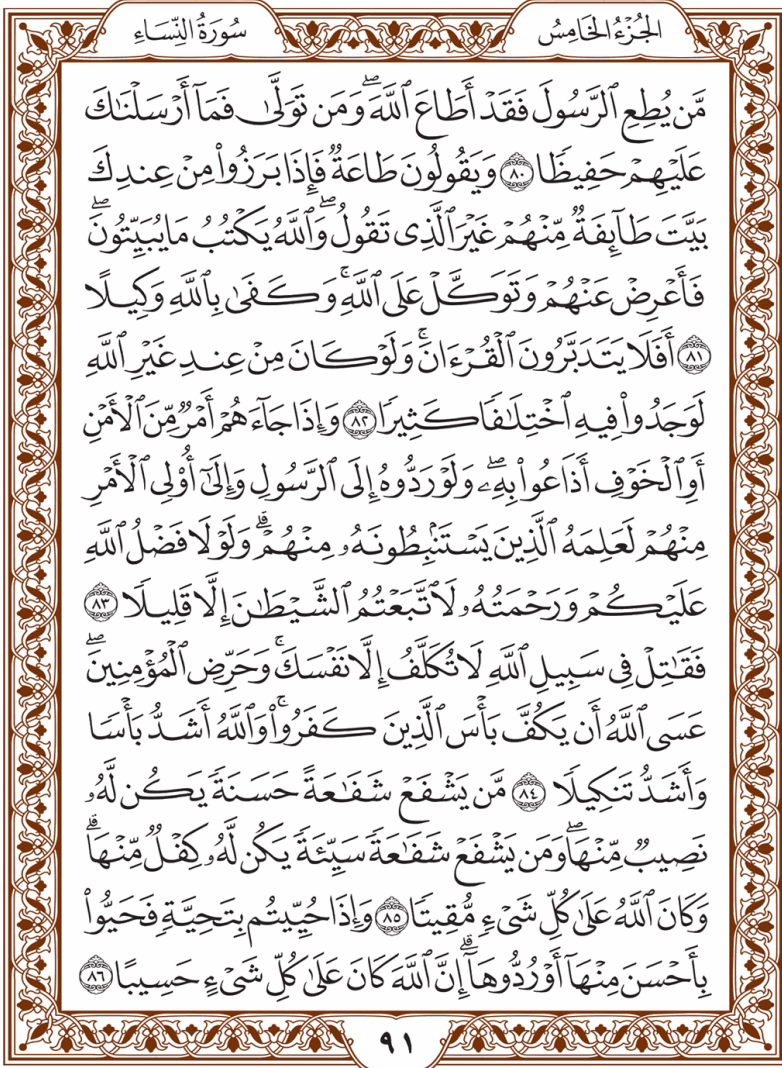 الجُزْءُ الخَامِسُ
سُورَةُ النِّسَاءِ
مَّن يُطِعِ ٱلرَّسُولَ فَقَدْ أَطَاعَ ٱللَّهَۖ وَمَن تَوَلَّىٰ فَمَآ أَرْسَلْنَٰكَ
عَلَيْهِمْ حَفِيظًا ٨٠ وَيَقُولُونَ طَاعَةٌ فَإِذَا بَرَزُوا۟ مِنْ عِندِكَ
بَيَّتَ طَآئِفَةٌ مِّنْهُمْ غَيْرَ ٱلَّذِى تَقُولُۖ وَٱللَّهُ يَكْتُبُ مَا يُبَيِّتُونَۖ
فَأَعْرِضْ عَنْهُمْ وَتَوَكَّلْ عَلَى ٱللَّهِۚ وَكَفَىٰ بِٱللَّهِ وَكِيلًا
٨١ أَفَلَا يَتَدَبَّرُونَ ٱلْقُرْءَانَۚ وَلَوْ كَانَ مِنْ عِندِ غَيْرِ ٱللَّهِ
لَوَجَدُوا۟ فِيهِ ٱخْتِلَٰفًا كَثِيرًا ٨٢ وَإِذَا جَآءَهُمْ أَمْرٌ مِّنَ ٱلْأَمْنِ
أَوِ ٱلْخَوْفِ أَذَاعُوا۟ بِهِۦۖ وَلَوْ رَدُّوهُ إِلَى ٱلرَّسُولِ وَإِلَىٰٓ أُو۟لِى ٱلْأَمْرِ
مِنْهُمْ لَعَلِمَهُ ٱلَّذِينَ يَسْتَنۢبِطُونَهُۥ مِنْهُمْۗ وَلَوْلَا فَضْلُ ٱللَّهِ
عَلَيْكُمْ وَرَحْمَتُهُۥ لَٱتَّبَعْتُمُ ٱلشَّيْطَٰنَ إِلَّا قَلِيلًا ٨٣
فَقَٰتِلْ فِى سَبِيلِ ٱللَّهِ لَا تُكَلَّفُ إِلَّا نَفْسَكَۚ وَحَرِّضِ ٱلْمُؤْمِنِينَۖ
عَسَى ٱللَّهُ أَن يَكُفَّ بَأْسَ ٱلَّذِينَ كَفَرُوا۟ۚ وَٱللَّهُ أَشَدُّ بَأْسًا
وَأَشَدُّ تَنكِيلًا ٨٤ مَّن يَشْفَعْ شَفَٰعَةً حَسَنَةً يَكُن لَّهُۥ
نَصِيبٌ مِّنْهَاۖ وَمَن يَشْفَعْ شَفَٰعَةً سَيِّئَةً يَكُن لَّهُۥ كِفْلٌ مِّنْهَاۗ
وَكَانَ ٱللَّهُ عَلَىٰ كُلِّ شَىْءٍ مُّقِيتًا ٨٥ وَإِذَا حُيِّيتُم بِتَحِيَّةٍ فَحَيُّوا۟
بِأَحْسَنَ مِنْهَآ أَوْ رُدُّوهَآۗ إِنَّ ٱللَّهَ كَانَ عَلَىٰ كُلِّ شَىْءٍ حَسِيبًا ٨٦
٩١